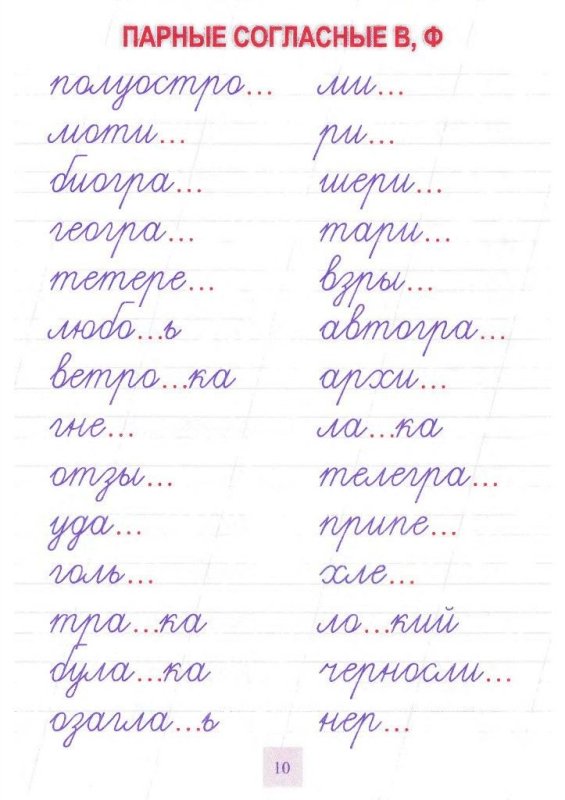 ПАРНЫЕ СОГЛАСНЫЕ В, Ф
полуостро... ми...
моти... ри...
биогра... шери...
геогра... тари...
тетере... взры...
любо...ь автогра...
ветро...ка архи...
гне... ла...ка
отзы... телегра...
уда... припе...
голь... хле...
тра...ка ло...кий
була...ка черносли...
озагла...ь нер...
10